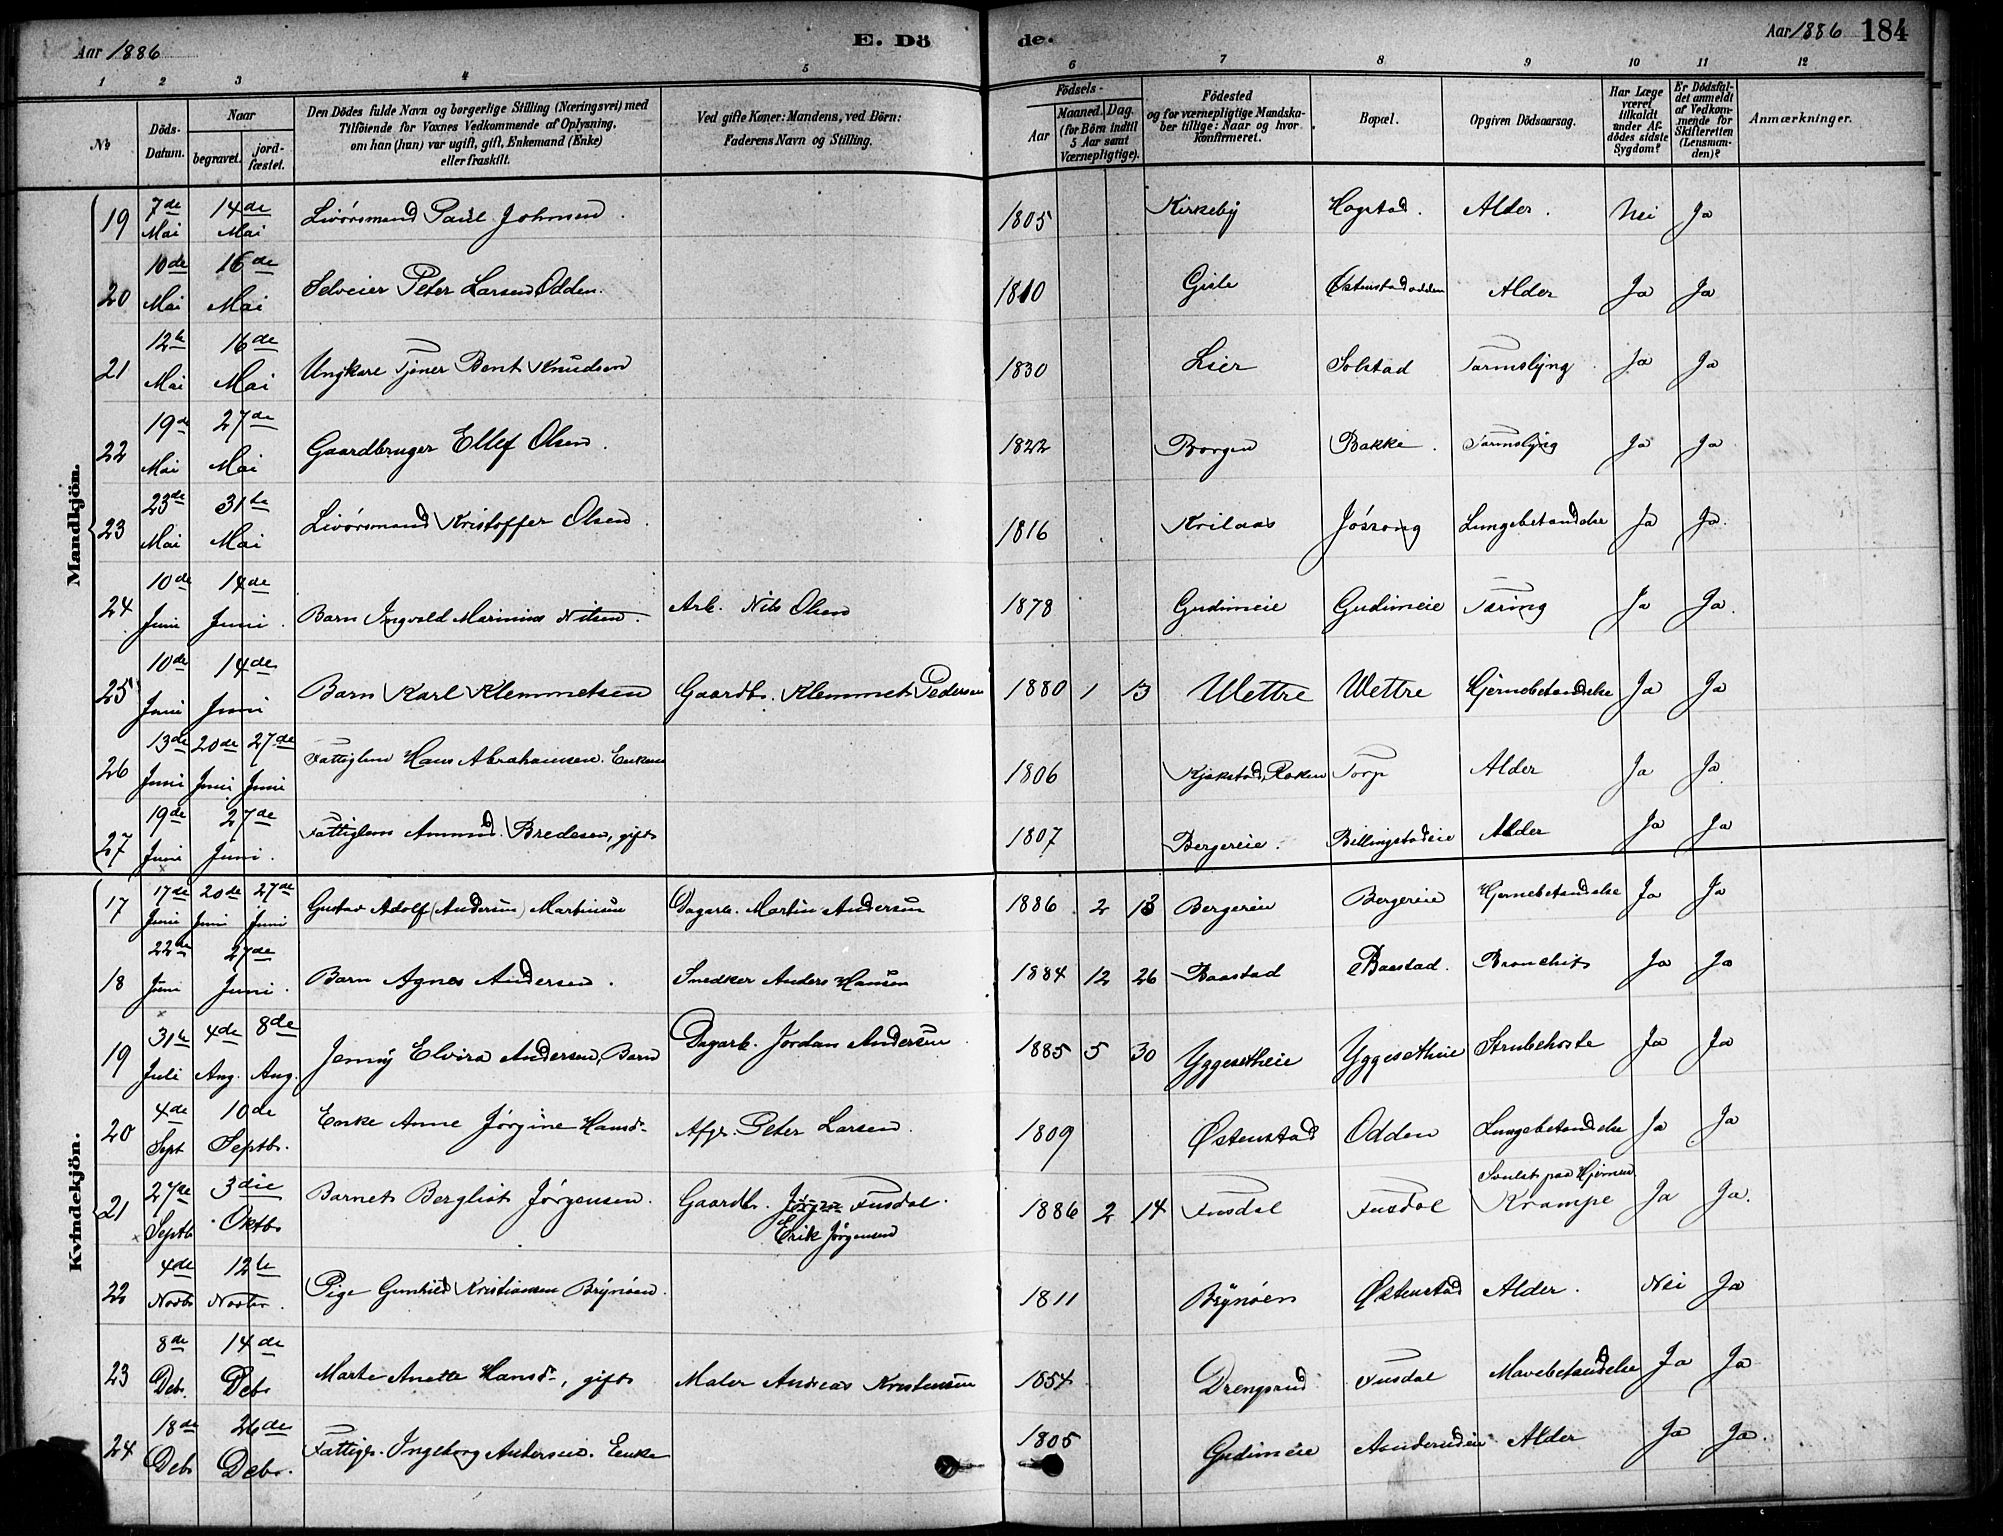 Aar 1886
E. Dö
de.
Aar 1886 184
1 2 3 4 5 6 7 8 9 10 11 12
No
Döds-Datum.
Naar
begravet.
jordfæstet.
Den Dödes fulde Navn og borgerlige Stilling (Næringsvei) med
Tilföiende for Voxnes Vedkommende af Oplysning,
om han (hun) var ugift, gift, Enkemand (Enke)
eller fraskilt.
Ved gifte Koner: Mandens, ved Börn:
Faderens Navn og Stilling.
Födsels-
Aar
Maaned. Dag.
(for Börn indtil
5 Aar samt
Værnepligtige).
Födested
og for værnepligtige Mandskaber tillige: Naar og hvor
Konfirmeret.
Bopæl.
Opgiven Dödsaarsag.
Har Læge været tilkaldt under Afdödes sidste Sygdom?
Er Dödsfaldet anmeldt af Vedkommende for Skifteretten (Lensmanden)?
Anmærkninger.
Mandkjön.
19 7de Mai 14de Mai Livörsmand Paul Johnsen. 1805 Kirkeby Hogstad. Alder. Nei Ja
20 10de Mai 16de Mai Selveier Peter Larsen Odden. 1810 Gisle Østenstadodden Alder Ja Ja
21 12te Mai 16de Mai Ungkare Tjener Bent Knudsen 1830 Lier Solstad Tarmslyng Ja Ja
22 19de Mai 27de Mai Gaardbruger Ellef Olsen. 1822 Borgen Bakke. Tarmslyng Ja Ja
23 23de Mai 31te Mai Livörsmand Kristoffer Olsen. 1816 Krilaas Jössong Lungebetændelse Ja Ja.
24 10de Juni 14de Juni. Barn Ingvald Marinius Nilsen. Arb. Nils Olsen 1878 Gudimeie Gudimeie Tæring Ja Ja.
25 10de Juni 14de Juni Barn Karl Klemmetsen Gaardb. Klemmet Pedersen 1880 1 13 Wettre Wettre Hjernebetændelse Ja Ja
26 13de Juni 20de Juni 27de Juni Fattiglem Hans Abrahamsen. Enkem 1806 Kjekstad, Røken Torp Alder Ja Ja
27 19de Juni 27de Juni. Fattiglem Ammund Bredesen, gift 1807 Bergereie. Billingstadeie Alder Ja Ja
Kvindekjön.
17 17de Juni 20de Juni 27de Juni Gustav Adolf (Andersen) Martinsen Dagarb. Martin Andersen 1886 2 13 Bergereie Bergereie Hjernebetændelse Ja Ja
18 22de Juni 27de Juni. Barn Agnes Andersen. Snedker Anders Hansen 1884 12 26 Baastad Baastad. Bronchit Ja Ja
19 31te Juli 4de Aug. 8de Aug. Jenny Elvira Andersen, Barn Dagarb. Jordan Andersen 1885 5 30 Yggesetheie Yggesetheie Strubehoste Ja Ja
20 4de Sept 10de Septbr. Enke Anne Jørgine Hansd. Afg. Peter Larsen. 1809 Østenstad Odden Lungebetændelse Ja Ja
21 27de Septb 3die Oktb Barnet Bergliot Jørgensen. Gaardb. Jørgen Fusdal.
Erik Jørgensen 1886 2 14 Fusdal Fusdal Svulst paa Hjernen Krampe Ja Ja.
22 4de Novb 12te Novbr. Pige Gunhild Kristiansen Brynøen. 1811 Brynøen Østenstad Alder. Nei Ja
23 8de Deb. 14de Deb. Marte Anette Hansd., gift Maler Andreas Kristensen 1854 Drengsrud Fusdal Mavebetændelse Ja Ja
24 18de Deb 26de Debr. Fattigl. Ingeborg Andersen. Enke 1805 Gudimeie Alder Ja Ja.